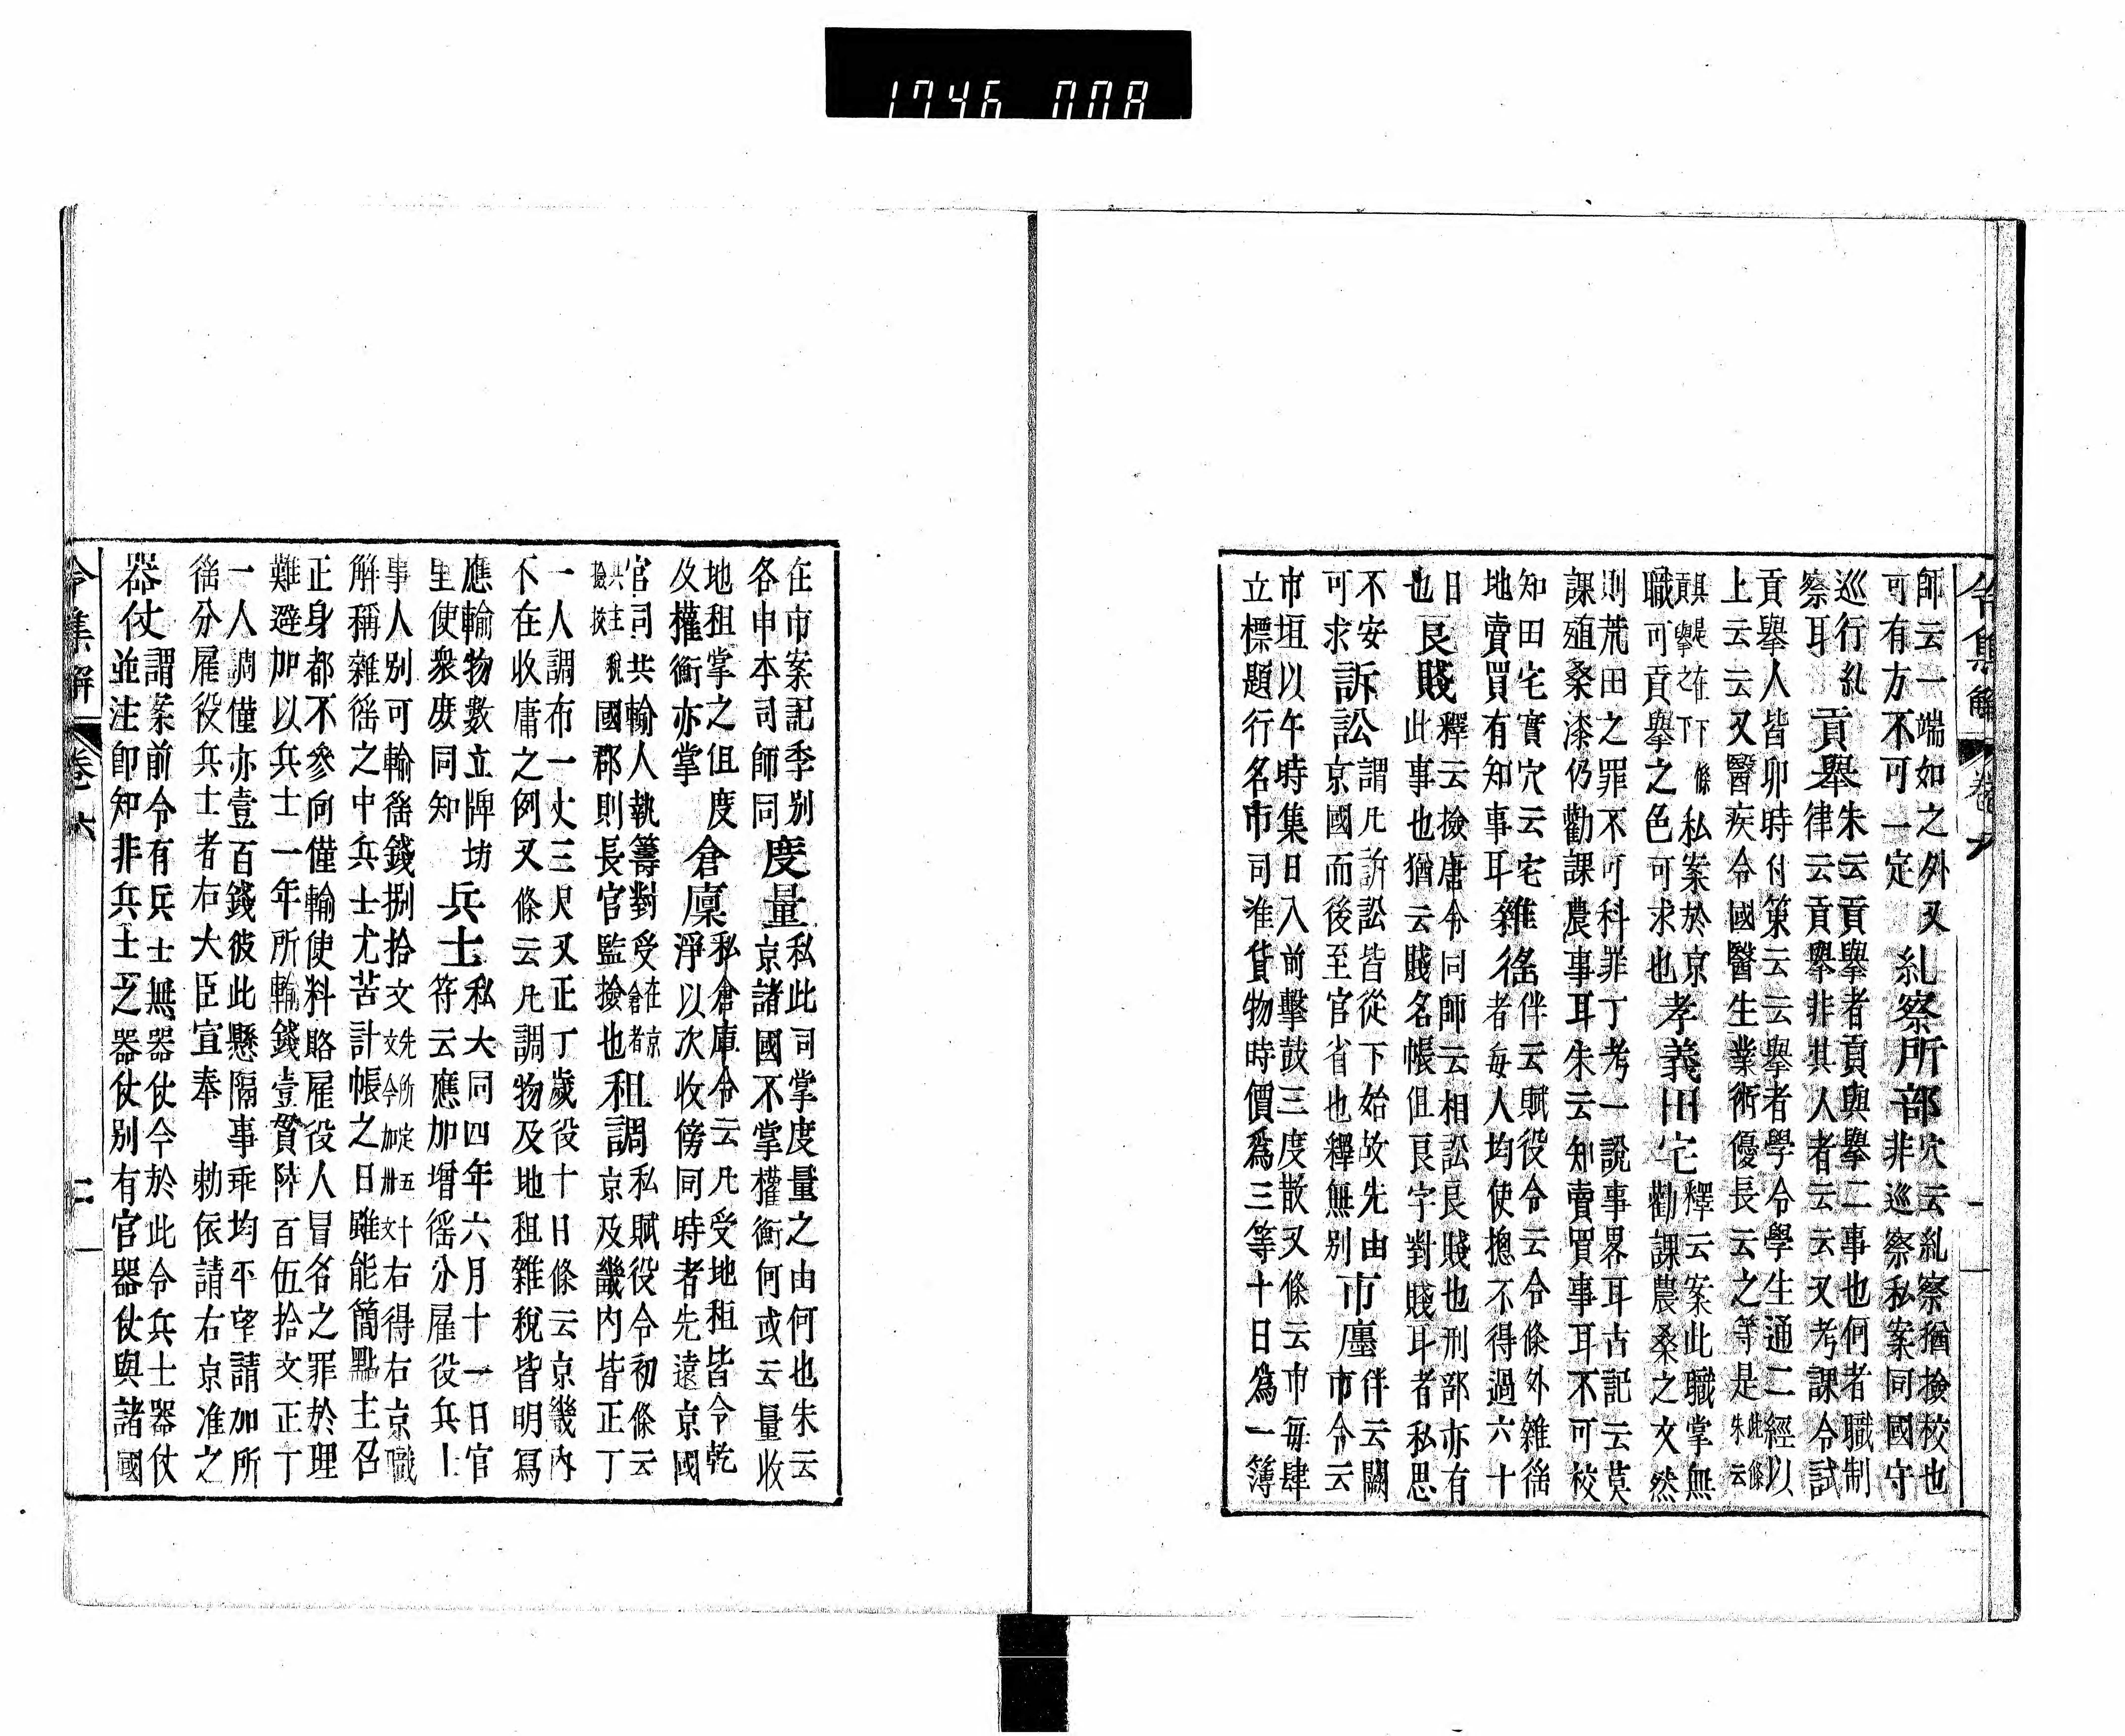 1746 008
令集解 卷六 一
師云一端如之外又
可有方不可一定
糺察所部
穴云糺察猶撿校也
非巡察私案同國守
巡行糺
察耳
貢擧
朱云貢擧者貢與擧二事也何者職制
律云貢擧非其人者云云又考課令試
貢擧人皆卯時付策云云擧者學令學生通二經以
上云云又醫疾令國醫生業術優長云之等是
此條
朱云
貢擧之
具是在下條
私案於京
職可貢擧之色可求也
孝義田宅
釋云案此職掌無
勸課農桑之文然
則荒田之罪不可科罪丁考一說事畧耳古記云莫
課殖桑漆仍勸課農事耳朱云知賣買事耳不可校
知田宅實穴云宅
地賣買有知事耳
雜徭
伴云賦役令云令條外雜徭
者每人均使摠不得過六十
日
也
良賤
釋云撿唐令同師云相訟良賤也刑部亦有
此事也猶云賤名帳但良字對賤耳者私思
不安
可求
訴訟
謂凡訴訟皆從下始故先由
京國而後至官省也釋無別
市廛
伴云關
市令云
市垣以午時集日入前擊鼓三度散又條云市每肆
立標題行名市司准貨物時價爲三等十日爲一簿
在市案記季別
各申本司師同
度量
私此司掌度量之由何也朱云
京諸國不掌權衡何或云量收
地租掌之但度
及權衡亦掌
倉廩
私倉庫令云凡受地租皆令乾
淨以次收傍同時者先遠京國
官司共輸人執籌對受
在京
倉者
共主稅
撿挍
國郡則長官監撿也
租調
私賦役令初條云
京及畿內皆正丁
一人調布一丈三尺又正丁歲役十日條云京畿內
不在收庸之例又條云凡調物及地租雜稅皆明寫
應輸物數立牌坊
里使衆庶同知
兵士
私大同四年六月十一日官
符云應加增徭分雇役兵士
事人別可輸徭錢捌拾文
先所定五十
文今加卅文
右得右京職
解稱雜徭之中兵士尤苦計帳之日雖能簡點主召
正身都不參向僅輸使料賂雇役人冒名之罪於理
難避加以兵士一年所輸錢壹貫陸百伍拾文正丁
一人調僅亦壹百錢彼此懸隔事乖均平望請加所
徭分雇役兵士者右大臣宣奉 勅依請右京准之
器仗
謂案前令有兵士無器仗今於此令兵士器仗
並注卽知非兵士之器仗別有官器仗與諸國
令集解 卷六 二